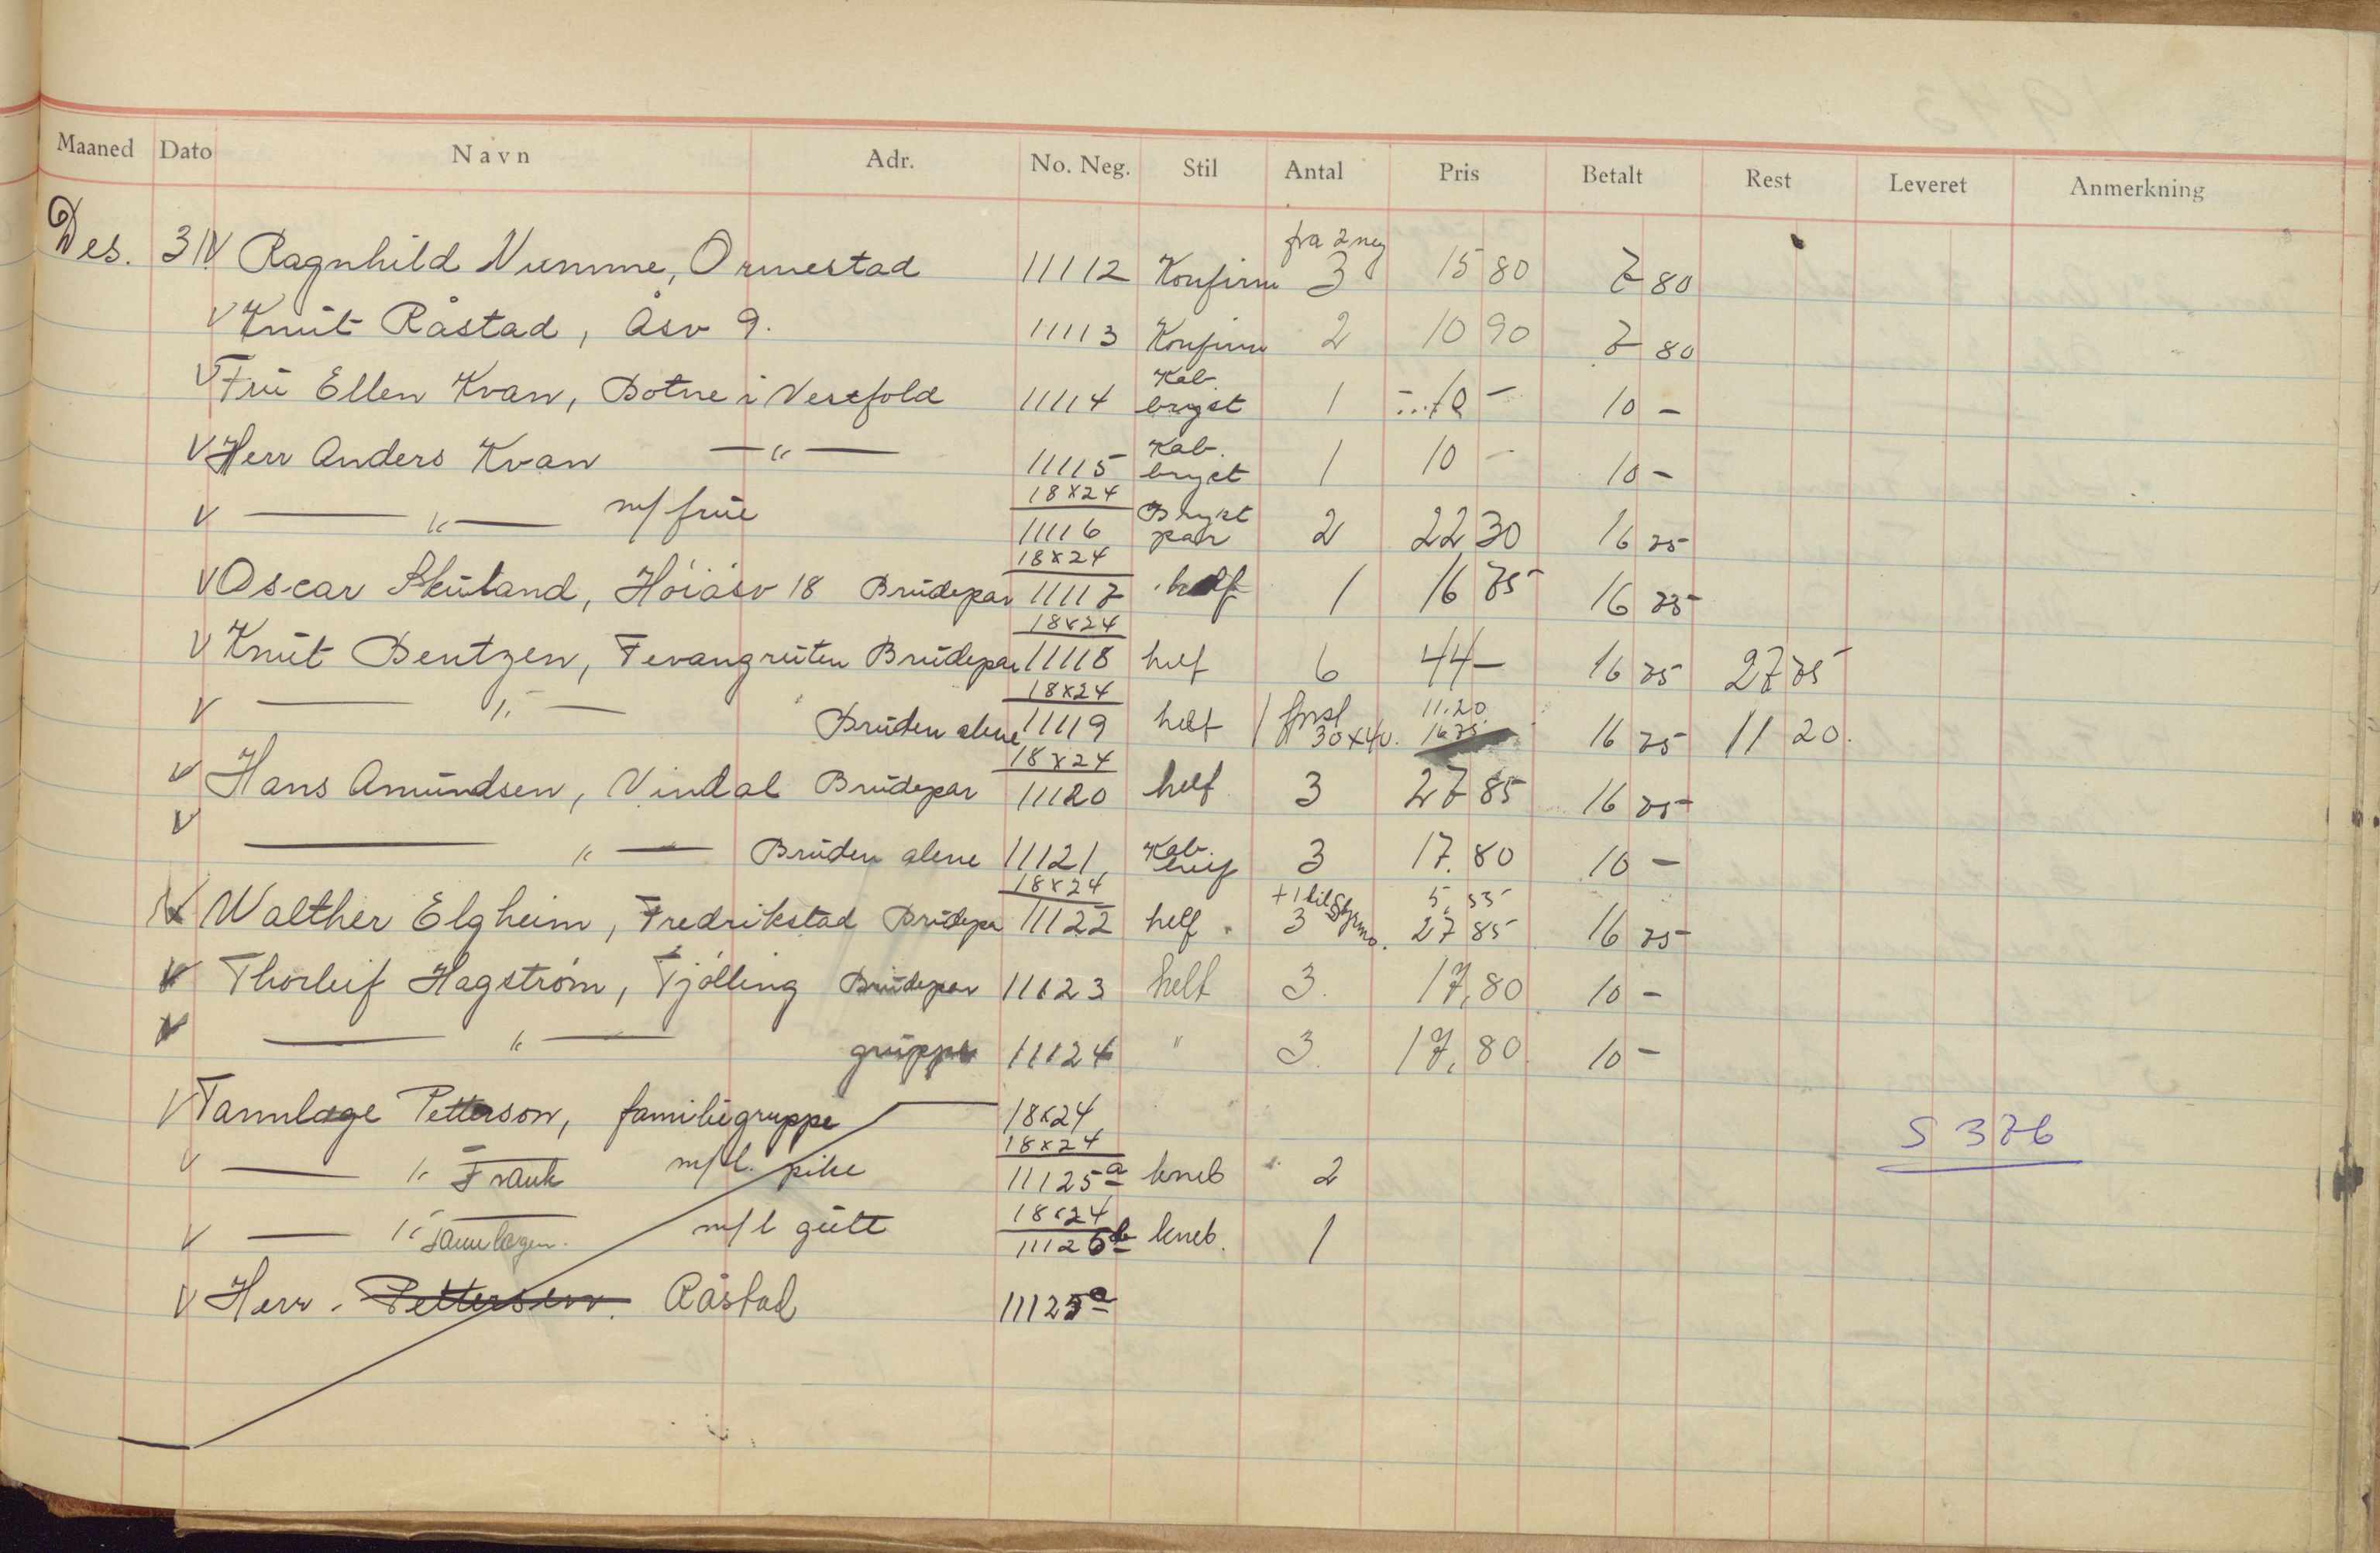 Maaned Dato Navn Adr. No. Neg. Stil Antal Pris Betalt Rest Leveret Anmerkning
fra 2 neg
Des. 31 V Ragnhild Numme, Ormestad 11112 Konfirm 3 15 80 7 80
V Knut Råstad, Åsv 9. 11113 Konfirm 2 10 90 7 80
Kab.
V Frü Ellen Kvan, Botne i Vestfold 11114 bryst 1 10 - 10 -
Kab.
V Herr Anders Kvan —"— 11115 bryst 1 10 - 10 -
18x24 Bryst
V —"— m/ früe 11116 par 2 22 30 16 75
18x24
V Oscar Skuland, Høiåsv 18 Brüdepar 11117 helf 1 16 75 16 75
18x24
V Knüt Bentzen, Fevangrüten Brüdepar 11118 helf 6 44 - 16 75 27 75
18x24 forst 11.20
V —"— Brüden alene 11119 helf 1 30x40. 16 75 16 75 11 20.
18x24
V Hans Amündsen, Vindal Brüdepar 11120 helf 3 27 85 16 75
V —"— Brüden alene 11121 Kab. 3 17.80 10 -
18x24 +1 til 5,55
V Walther Elgheim, Fredrikstad Brüdepar 11122 helf. 3 27 85 16 75
V Thorleif Hagström, Tjølling Brüdepar 11123 helf 3. 17,80 10 -
V —"— grüppe 11124 " 3. 17,80. 10 -
V Tannlege Petterson, familiegruppe 18x24 S 376
18x24
V —" Frank m/l. pike 11125a kneb 2
18x24
V —" Tannlegen. m/l gütt 11126b kneb. 1
V Herr. Pettersen. Råstad 11125a